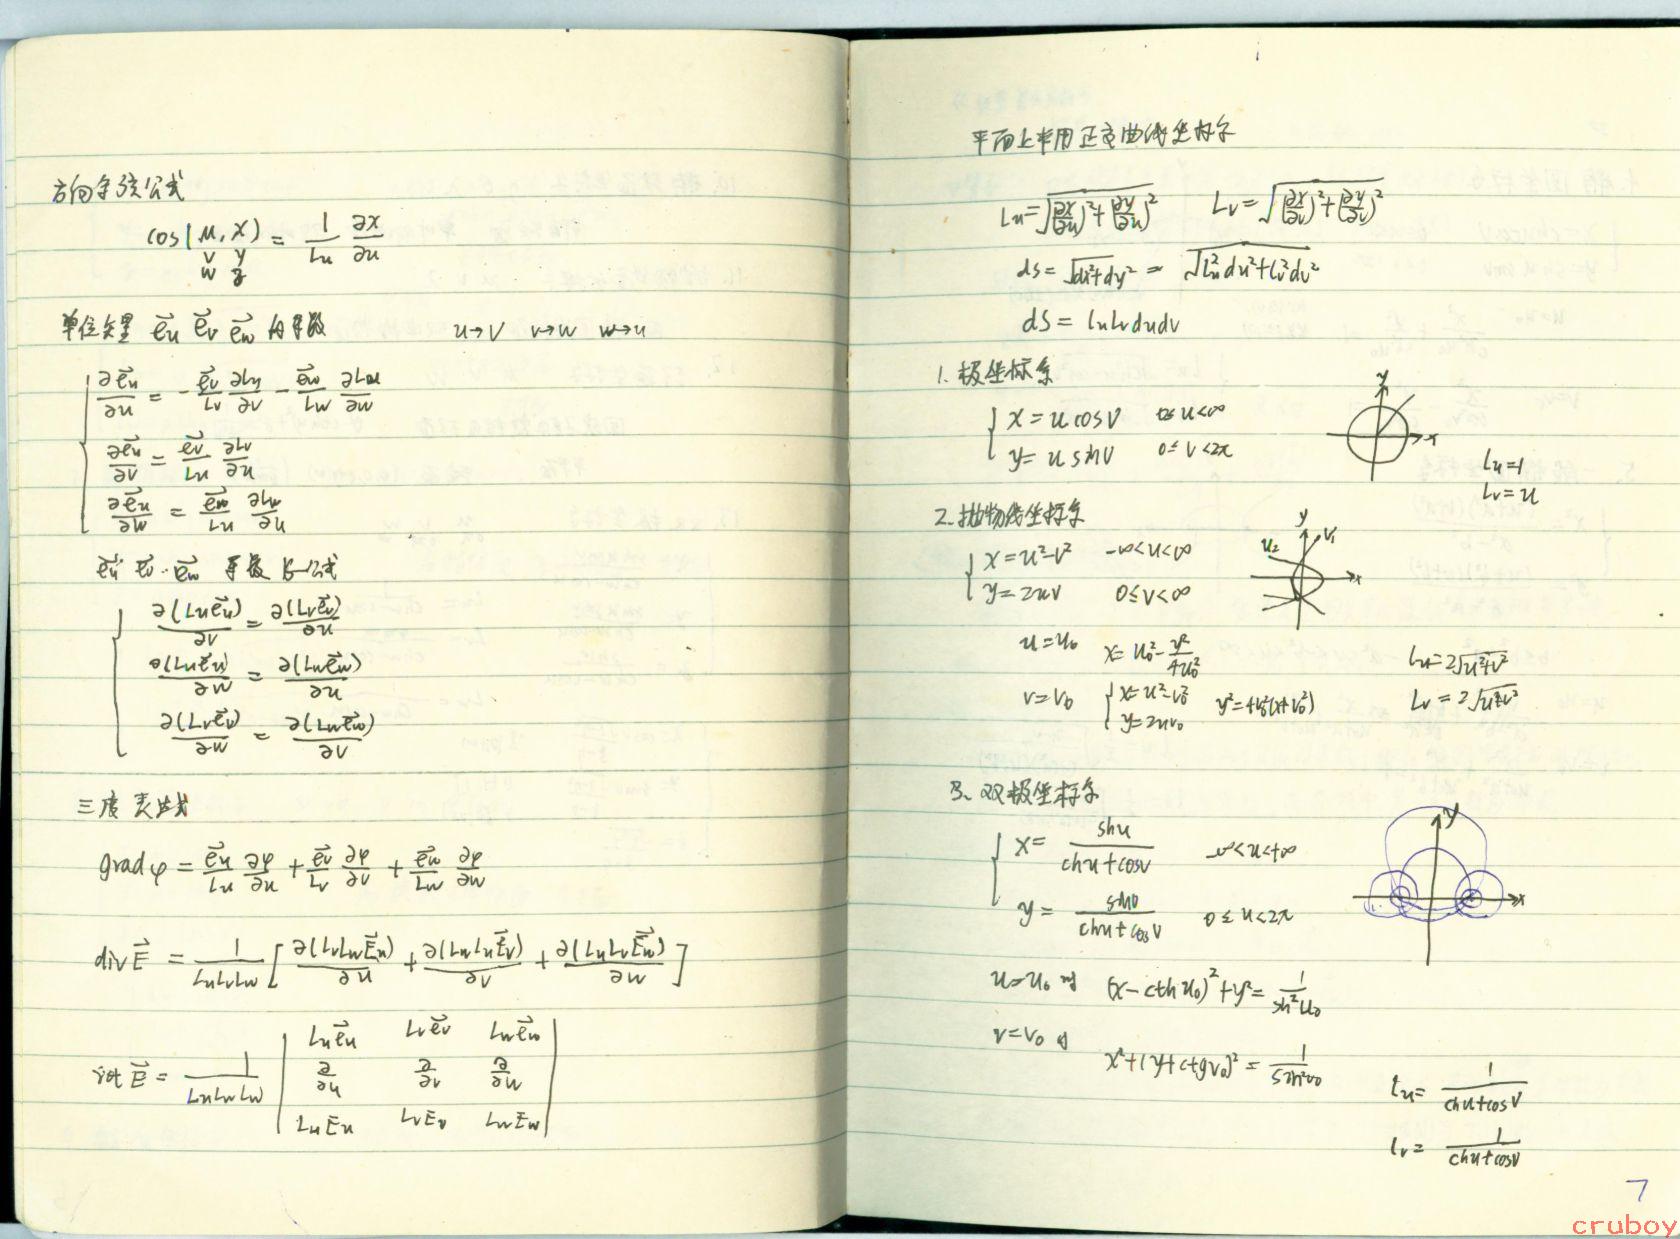 方向余弦公式
cos(u, x) = 1/Lu ∂x/∂u
v y
w z
单位矢量 e⃗u e⃗v e⃗w 的导数 u→v v→w w→u
∂e⃗u/∂u = - e⃗v/Lv ∂Lu/∂v - e⃗w/Lw ∂Lu/∂w
∂e⃗u/∂v = e⃗v/Lu ∂Lv/∂u
∂e⃗u/∂w = e⃗w/Lu ∂Lw/∂u
e⃗u e⃗v e⃗w 导数 公式
∂(Lue⃗u)/∂v = ∂(Lve⃗v)/∂u
∂(Lue⃗u)/∂w = ∂(Lwe⃗w)/∂u
∂(Lve⃗v)/∂w = ∂(Lwe⃗w)/∂v
三度表达式
grad φ = e⃗u/Lu ∂φ/∂u + e⃗v/Lv ∂φ/∂v + e⃗w/Lw ∂φ/∂w
div E⃗ = 1/LuLvLw [ ∂(LvLwE⃗u)/∂u + ∂(LwLuE⃗v)/∂v + ∂(LuLvE⃗w)/∂w ]
rot E⃗ = 1/LuLvLw | Lue⃗u Lve⃗v Lwe⃗w
∂/∂u ∂/∂v ∂/∂w
LuEu LvEv LwEw |
平面上常用正交曲线坐标系
Lu = √(∂x/∂u)²+(∂y/∂u)² Lv = √(∂x/∂v)²+(∂y/∂v)²
ds = √dx²+dy² = √Lu²du²+Lv²dv²
dS = LuLvdudv
1. 极坐标系
x = u cosv 0≤u<∞
y = u sinv 0≤v<2π
y x
Lu=1
Lv=u
2. 抛物线坐标系
x = u²-v² -∞<u<∞
y = 2uv 0≤v<∞
y x u₂ v₁
u=u₀ x = u₀² - y²/4u₀² Lu = 2√u²+v²
v=v₀ { x=u²-v₀² y²=4v₀²(x+v₀²) Lv = 2√u²+v²
y=2uv₀
3. 双极坐标系
x = shu/chu+cosv -∞<u<+∞
y = sinv/chu+cosv 0≤u<2π
y x
u=u₀ 时 (x-cthu₀)²+y² = 1/sh²u₀
v=v₀ 时
x²+(y+ctgv₀)² = 1/sin²v₀
Lu = 1/chu+cosv
Lv = 1/chu+cosv
7
cruboy